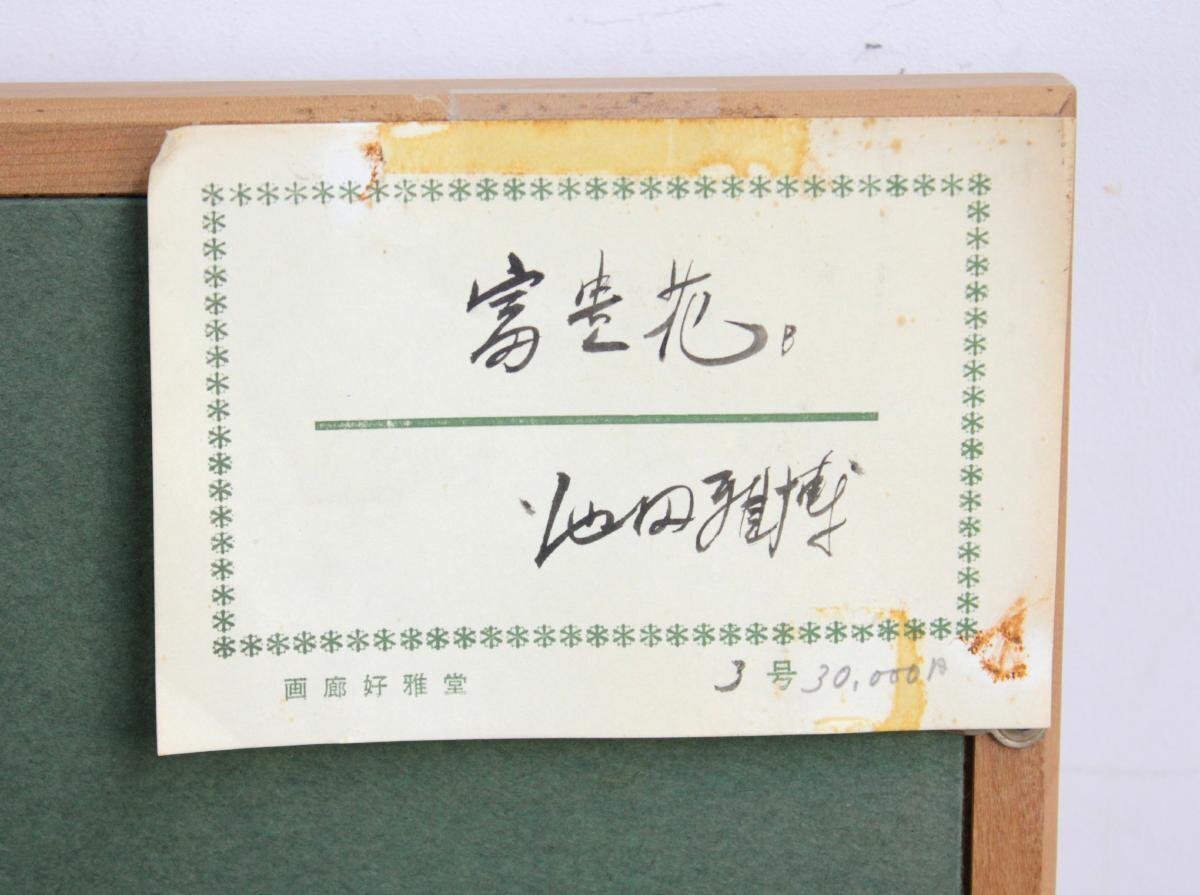 富貴花B
池田雅博
画廊好雅堂
3号 30,000円